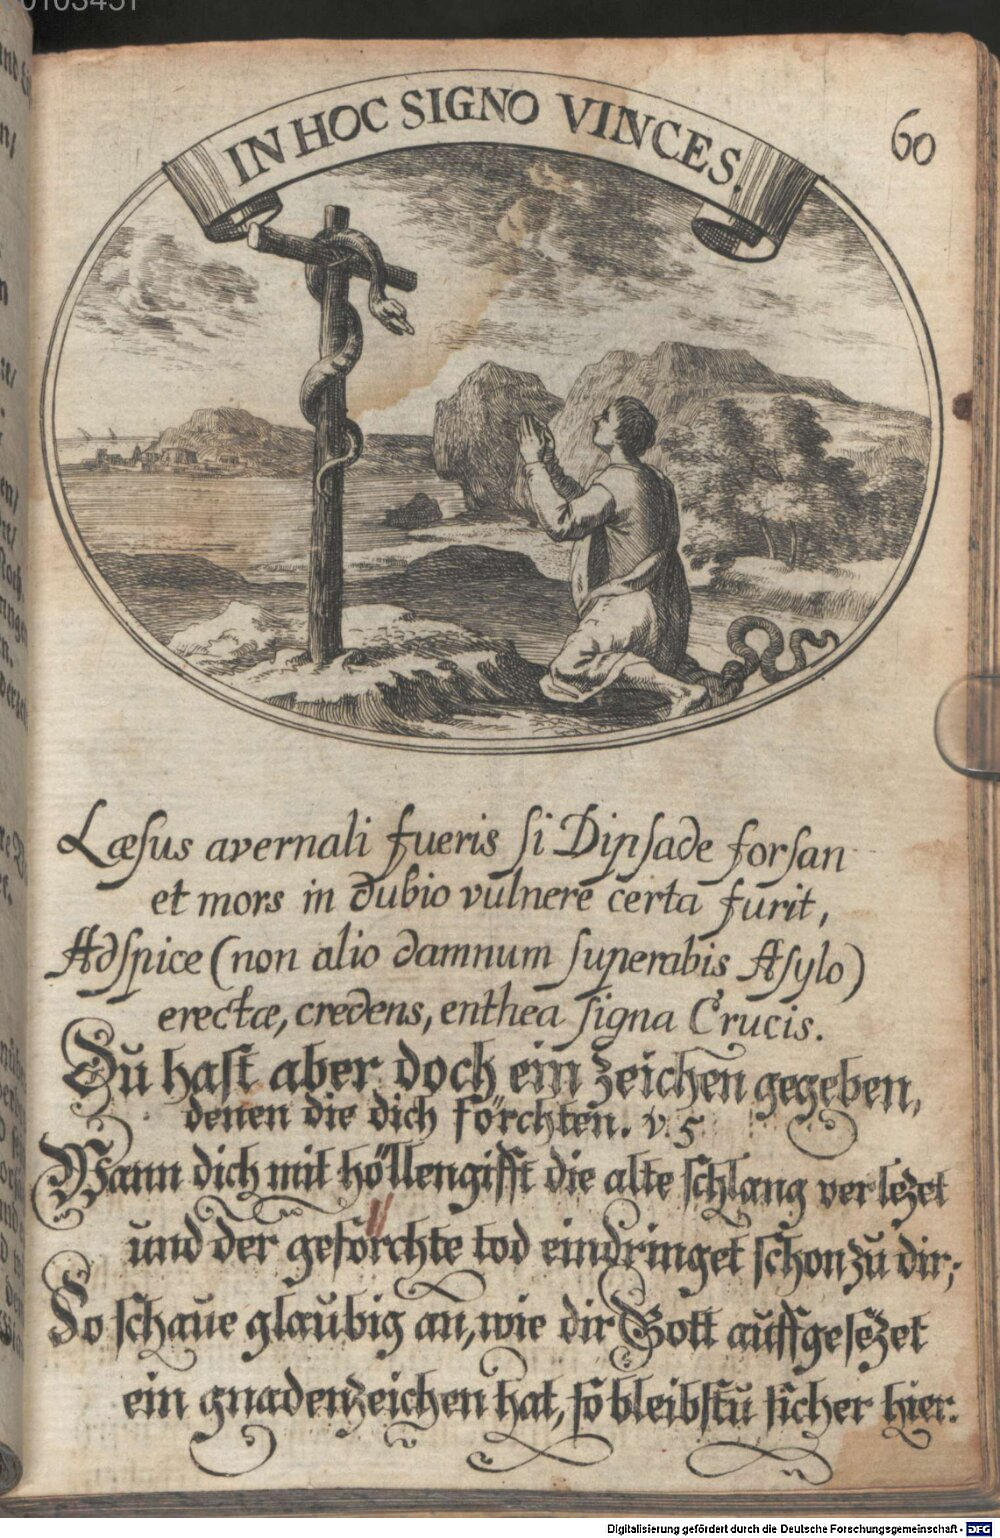 60103451
60
IN HOC SIGNO VINCES.
Læſus avernali fueris ſi Dipſade forſan
et mors in dubio vulnere certa furit,
Adſpice (non alio damnum ſuperabis Aſylo)
erectæ, credens, enthea ſigna Crucis.
Du haſt aber doch ein zeichen gegeben,
denen die dich förchten. v. 5
Wann dich mit höllengifft die alte ſchlang verlezet
und der geförchte tod eindringet ſchon zu dir;
So ſchaue glaubig an, wie dir Gott auffgeſezet
ein gnadenzeichen hat, ſo bleibſtu ſicher hier.
Digitalisierung gefördert durch die Deutsche Forschungsgemeinschaft - DFG